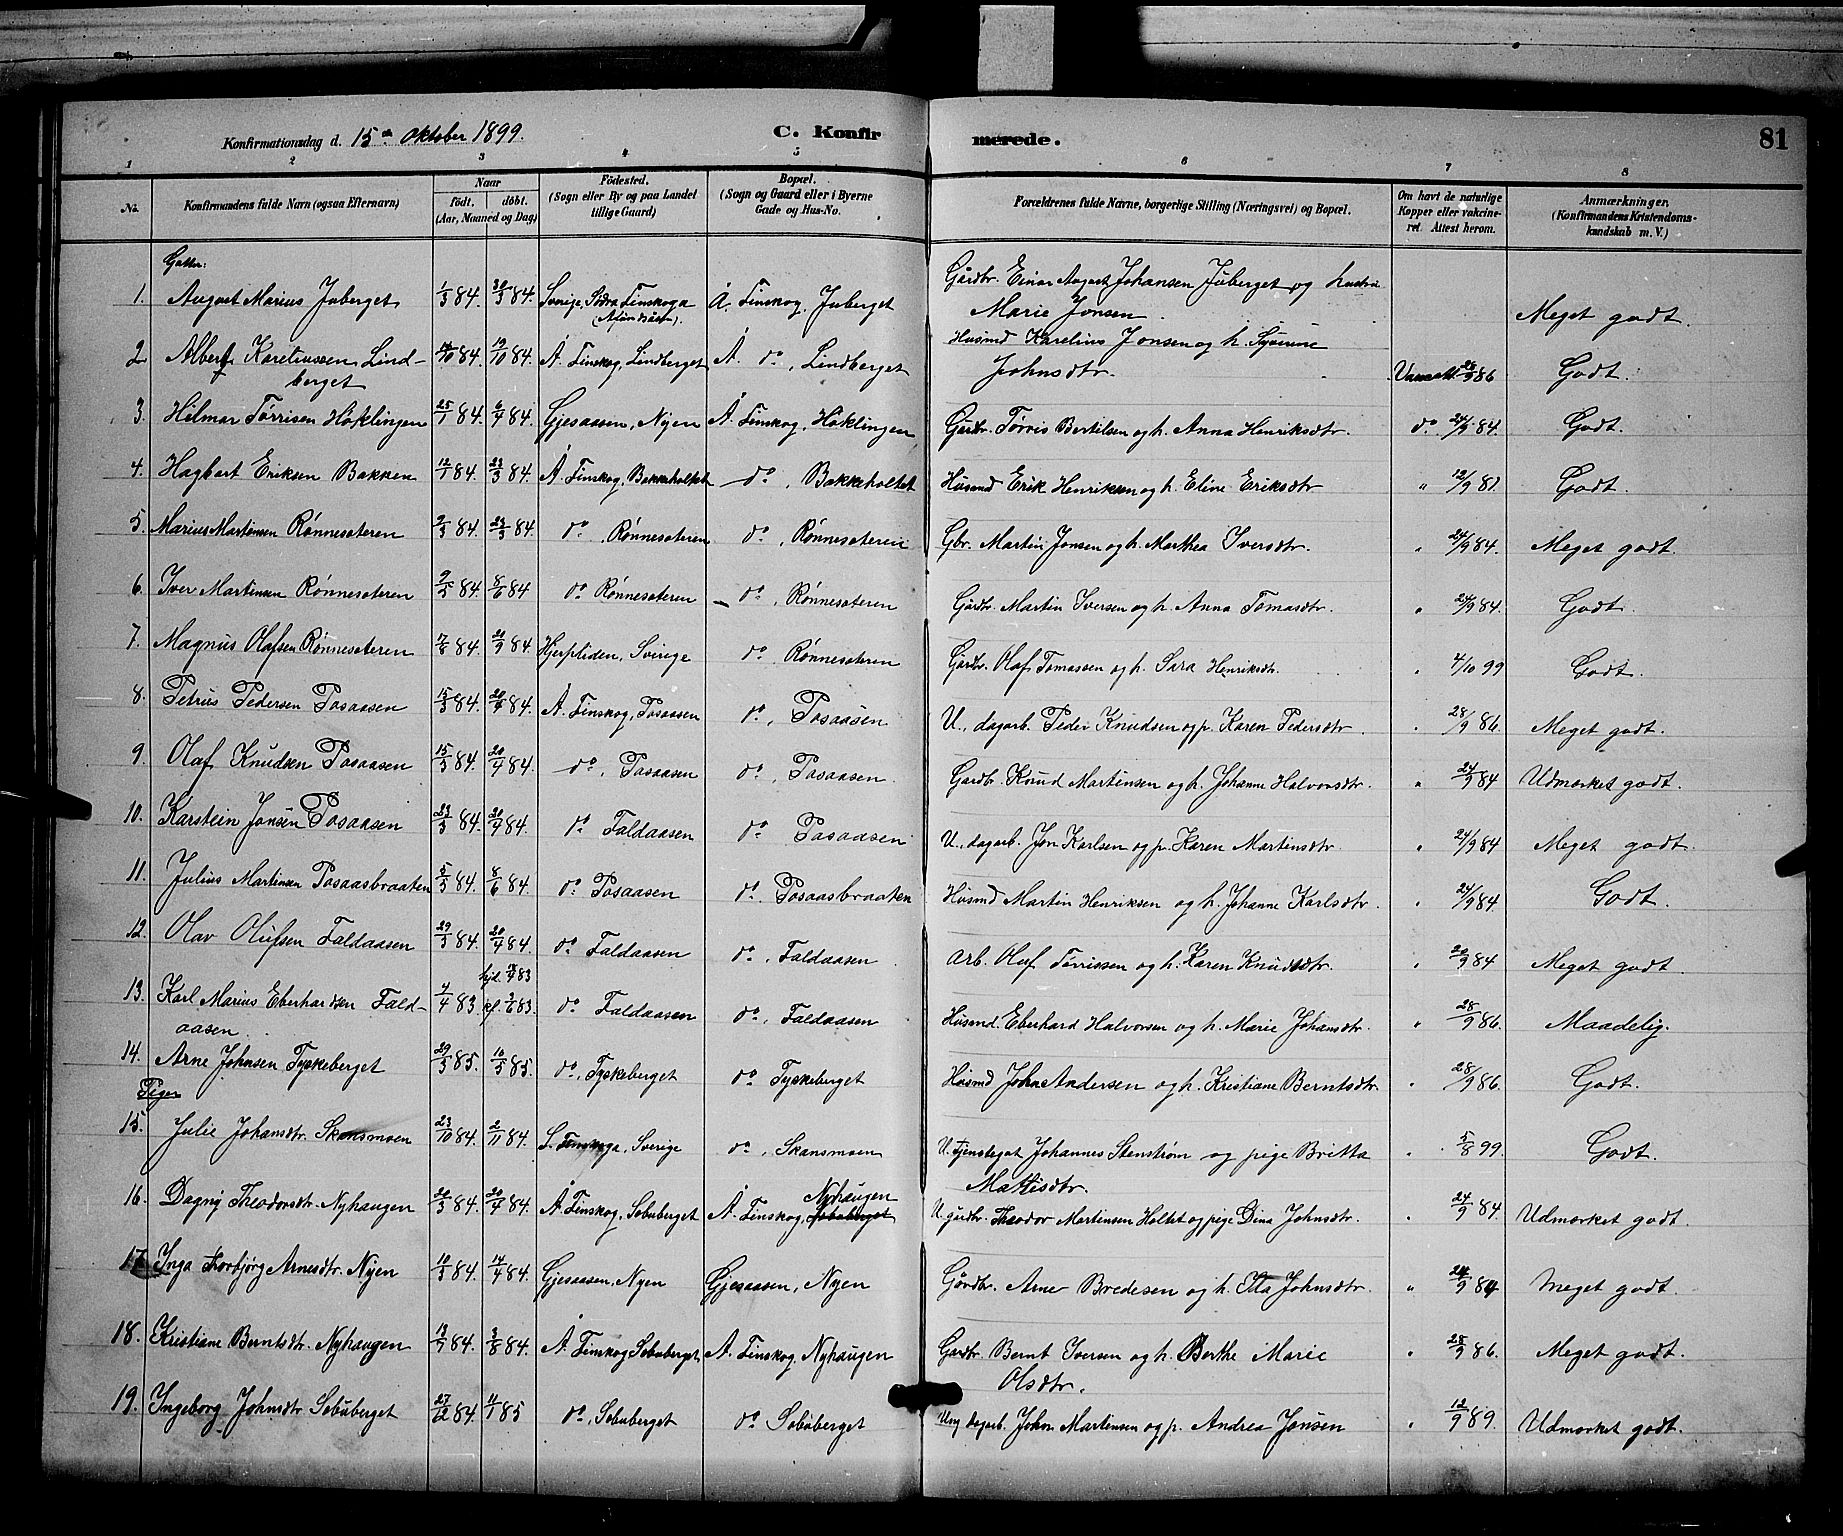 Konfirmationsdag d. 15de Oktober 1899.
C. Konfirmerede.
81
1 2 3 4 5 6 7 8
No.
Konfirmandens fulde Navn (ogsaa Efternavn)
Naar
födt. döbt.
(Aar, Maaned og Dag)
Födested.
(Sogn eller By og paa Landet
tillige Gaard)
Bopæl.
(Sogn og Gaard eller i Byerne
Gade og Hus-No.
Forældrenes fulde Navne, borgerlige Stilling (Næringsvei) og Bopæl.
Om havt de naturlige
Kopper eller vakcine-
ret. Attest herom.
Anmærkninger.
(Konfirmandens Kristendoms-
kundskab m. V.)
Gutter:
1. August Marius Juberget 1/3 84. 30/3 84. Sverige, Södra Finskoga Å. Finskog, Juberget Gårdbr. Einar August Johansen Juberget og hustru
Marie Jonsen. Meget godt.
2 Albert Kareliussen Lind-
berget /10 84. 19/10 84. Å. Finskog, Lindberget Å. do, Lindberget Husmd Karelius Jonsen og h. Syverine
Johnsdtr. 86 Godt.
3. Hilmar Tørrisen Höklingen 25/1 84. 6/4 84. Gjesaasen, Nyen Å. Finskog, Höklingen Gårdbr. Tørris Bertilsen og h. Anna Henriksdtr. do 24/9 84. Godt.
4. Hagbart Eriksen Bakken 12/1 84. 23/3 84. Å. Finskog, Bakkeholtet do, Bakkeholtet Husmd Erik Henriksen og h. Eline Eriksdtr " 12/9 81. Godt.
5. Marius Martinsen Rønnesæteren 9/3 84. 23/3 84. do, Rønnesæteren do, Rønnesæteren Gbr. Martin Jonsen og h. Marthea Iversdtr. " 24/9 84. Meget godt.
6. Iver Martinsen Rønnesæteren 9/5 84. 8/6 84 do Rønnesæteren do, Rønnesæteren Gårdbr. Martin Iversen og h. Anna Tomasdtr. " 24/9 84. Godt.
7. Magnus Olafsen Rønnesæteren 7/8 84. 20/9 84. Hjerpliden, Sverige do, Rønnesæteren Gårdbr. Olaf Tomassen og h. Sara Henriksdtr. " 4/10 99 Godt.
8. Petrus Pedersen Posaasen 15/3 84. 20/4 84. Å. Finskog, Posaasen do, Posaasen U., dagarb. Peder Knudsen og p. Karen Pedersdtr. " 28/9 86. Meget godt.
9. Olaf Knudsen Posaasen 15/3 84. 20/4 84. do, Posaasen do, Posaasen. Gardbr. Knud Martinsen og h. Johanne Halvorsdtr. " 24/9 84 Udmærket godt.
10. Karstein Jonsen Posaasen 23/3 84. 20/4 84. do Faldaasen do Posaasen U., dagarb. Jon Karlsen og p. Karen Martinsdtr. " 24/9 84 Meget godt.
11. Julius Martinsen Posaasbraaten 5/5 84. 8/6 84. do Posaasen do, Posaasbraaten Husmd Martin Henriksen og h. Johanne Karlsdtr. " 24/9 84. Godt.
12. Olav Olufsen Faldaasen 29/3 84. 20/4 84. do Faldaasen do, Faldaasen Arb. Olaf Tørrissen og h. Karen Knudsdtr. " 84 Meget godt.
13. Karl Marius Eberhardsen Fald-
aasen. 7/4 83 hjd. 83 83. do Faldaasen do, Faldaasen Husmd. Eberhard Halvorsen og h. Marie Johansdtr. " 28/9 86. Maadelig.
14. Arne Johnsen Tyskeberget 29/3 85. 10/5 85. do, Tyskeberget do Tyskeberget Husmd John Andersen og h. Kristiane Berntsdtr. " 28/9 86. Godt.
Piger
15. Julie Johansdtr. Skansmoen 23/10 84. 2/11 84. S. Finskoga, Sverige do, Skansmoen U. tjenstegut Johannes Stenstrøm og pige Britta
Mattisdtr. " 5/8 99. Godt.
16. Dagny Theodorsdtr. Nyhaugen 20/3 84. 20/4 84. Å. Finskog, Sobuberget Å. Finskog, Sobuberget Nyhaugen U. gårdbr. Theodor Martinsen Holtet og pige Dina Johnsdtr. " 24/9 84. Udmærket godt.
17. Inga Thorbjørg Arnesdtr. Nyen /3 84. 14/4 84. Gjesaasen, Nyen Gjesaasen, Nyen Gårdbr. Arne Bredesen og h. Johnsdtr. " 24/9 84 Meget godt.
18. Kristiane Berntsdtr. Nyhaugen 84. 3/8 84. Å. Finskog Sobuberget Å. Finskog, Nyhaugen Gardbr. Bernt Iversen og h. Berthe Marie
Olsdtr. " 28/9 86. Meget godt.
19. Ingeborg Johnsdtr Sobuberget 27/12 84. 11/1 85 do, Sobuberget do Sobuberget Ung dagarb. John Martinsen og p. Andrea Jonsen " 12/9 89. Udmærket godt.